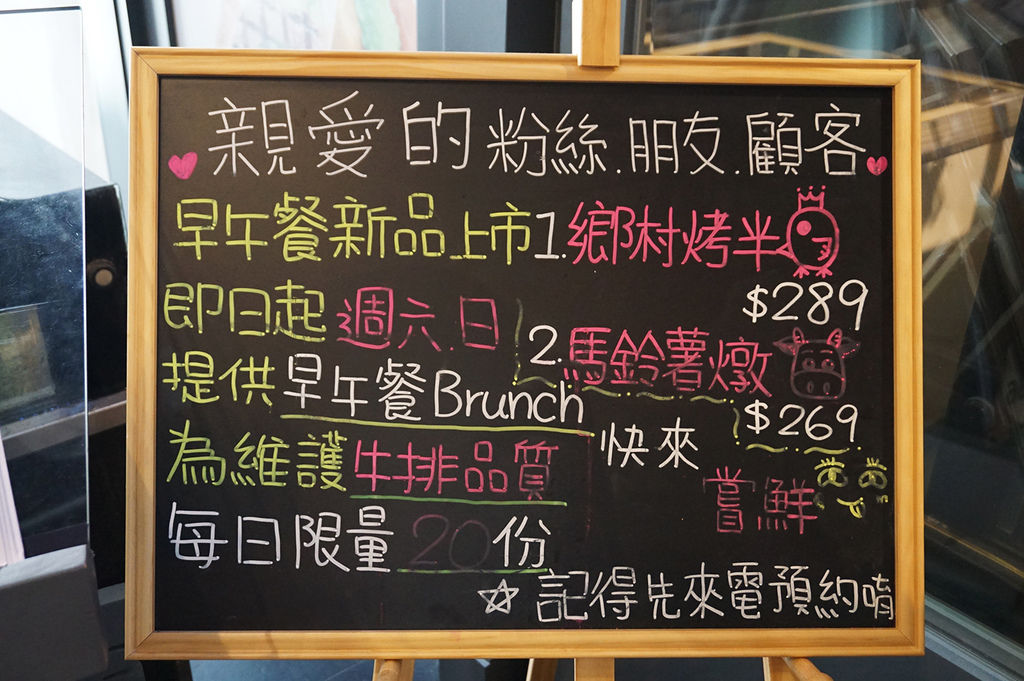 親愛的粉絲.朋友.顧客
早午餐新品上市
即日起週六.日
提供早午餐Brunch
為維護牛排品質
每日限量20份
1.鄉村烤半
$289
2.馬鈴薯燉
$269
快來
嘗鮮
記得先來電預約唷